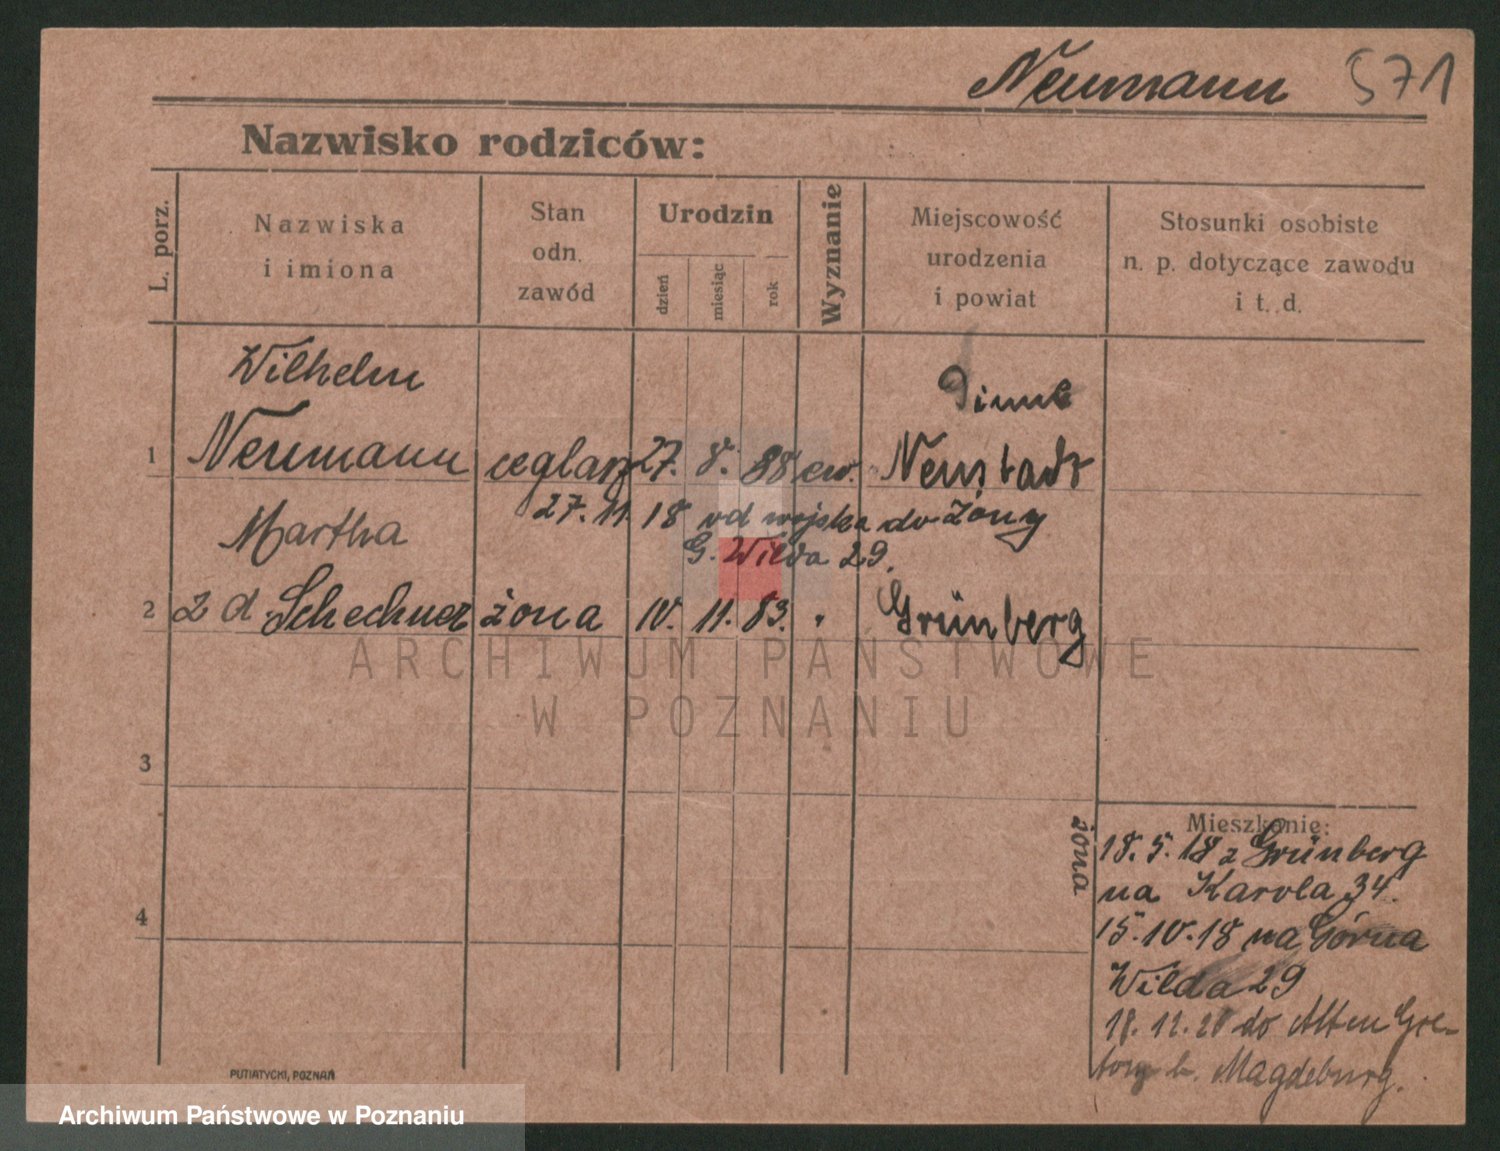 Neumann 571
Nazwisko rodziców:
L. porz.
Nazwiska
i imiona
Stan
odn.
zawód
Urodzin
dzień
miesiąc
rok
Wyznanie
Miejscowość
urodzenia
i powiat
Stosunki osobiste
n. p. dotyczące zawodu
i t. d.
Wilhelm
1 Neumann ceglarz 27. 8. 88 ew. Neustadt
27. 11. 18 od wojska do żony
G. Wilda 29.
Martha
2 z d. Schechner żona 10. 11. 83. " Grünberg
3
4
żona
Mieszkanie:
18. 5. 18 z Grünberg
na Karola 34.
15. 10. 18 na Górna
Wilda 29
18. 12. 20 do Alten
b. Magdeburg.
PUTIATYCKI, POZNAŃ
ARCHIWUM PAŃSTWOWE
W POZNANIU
Archiwum Państwowe w Poznaniu